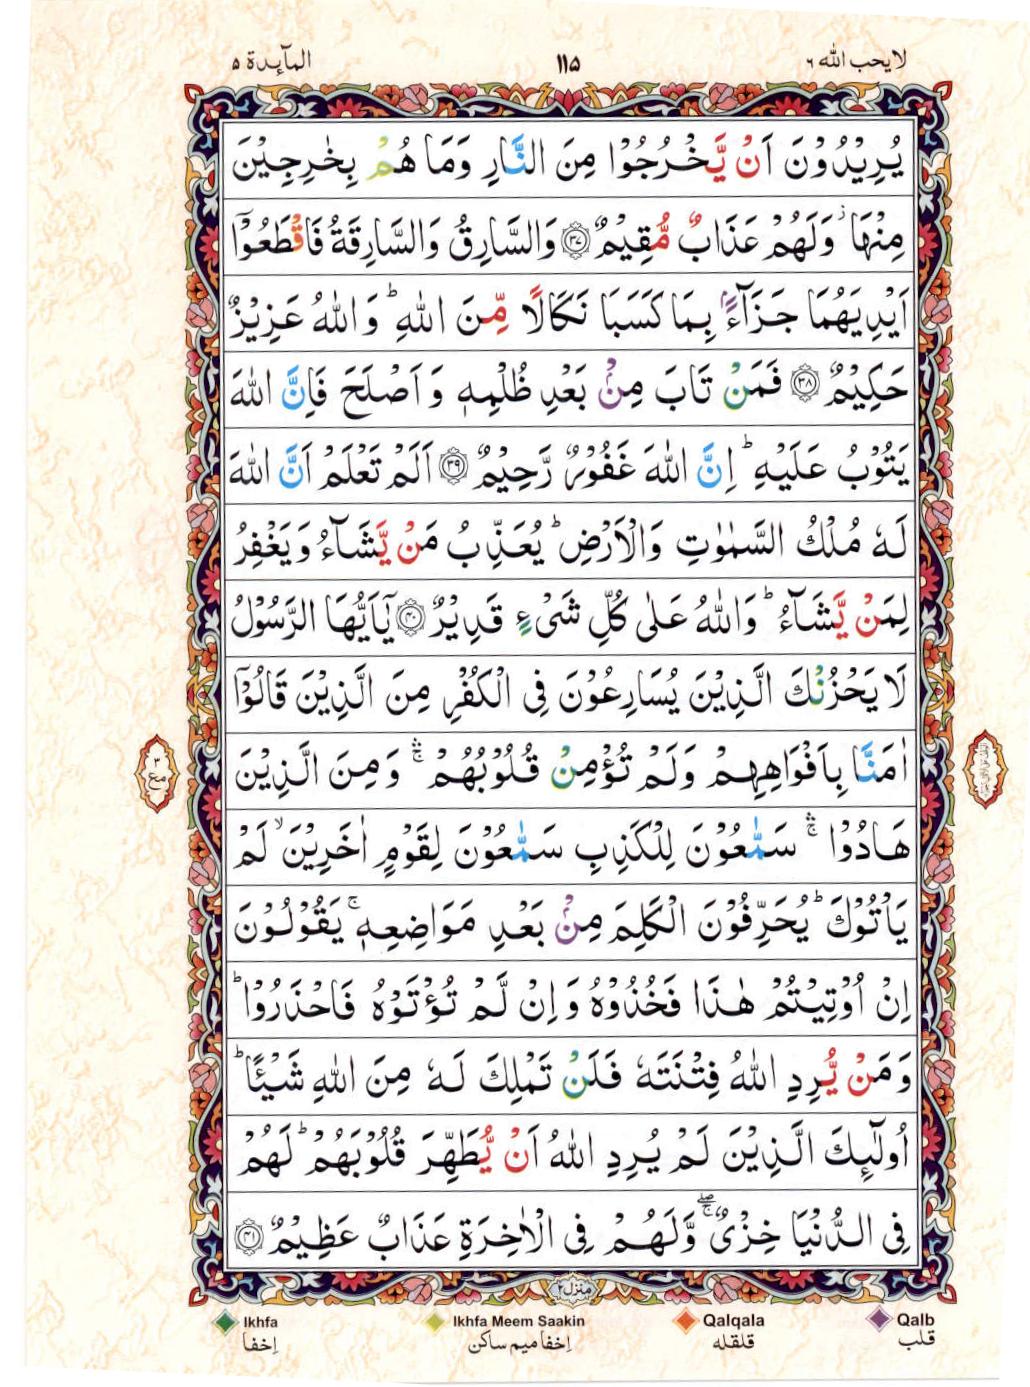 المآئدة ۵
۱۱۵
لا یحب الله ۶
یُرِیۡدُوۡنَ اَنۡ یَّخۡرُجُوۡا مِنَ النَّارِ وَمَا هُمۡ بِخٰرِجِیۡنَ
مِنۡهَا ۫ وَلَهُمۡ عَذَابٌ مُّقِیۡمٌ ﴿۳۷﴾ وَالسَّارِقُ وَالسَّارِقَةُ فَاقۡطَعُوۡۤا
اَیۡدِیَهُمَا جَزَآءًۢ بِمَا كَسَبَا نَكَالًا مِّنَ اللهِ ؕ وَاللهُ عَزِیۡزٌ
حَكِیۡمٌ ﴿۳۸﴾ فَمَنۡ تَابَ مِنۡۢ بَعۡدِ ظُلۡمِهٖ وَاَصۡلَحَ فَاِنَّ اللهَ
یَتُوۡبُ عَلَیۡهِ ؕ اِنَّ اللهَ غَفُوۡرٌ رَّحِیۡمٌ ﴿۳۹﴾ اَلَمۡ تَعۡلَمۡ اَنَّ اللهَ
لَهٗ مُلۡكُ السَّمٰوٰتِ وَالۡاَرۡضِ ؕ یُعَذِّبُ مَنۡ یَّشَآءُ وَیَغۡفِرُ
لِمَنۡ یَّشَآءُ ؕ وَاللهُ عَلٰی كُلِّ شَیۡءٍ قَدِیۡرٌ ﴿۴۰﴾ یٰۤاَیُّهَا الرَّسُوۡلُ
لَا یَحۡزُنۡكَ الَّذِیۡنَ یُسَارِعُوۡنَ فِی الۡكُفۡرِ مِنَ الَّذِیۡنَ قَالُوۡۤا
اٰمَنَّا بِاَفۡوَاهِهِمۡ وَلَمۡ تُؤۡمِنۡ قُلُوۡبُهُمۡ ۛۚ وَمِنَ الَّذِیۡنَ
هَادُوۡا ۛۚ سَمّٰعُوۡنَ لِلۡكَذِبِ سَمّٰعُوۡنَ لِقَوۡمٍ اٰخَرِیۡنَ ۙ لَمۡ
یَاۡتُوۡكَ ؕ یُحَرِّفُوۡنَ الۡكَلِمَ مِنۡۢ بَعۡدِ مَوَاضِعِهٖ ۚ یَقُوۡلُوۡنَ
اِنۡ اُوۡتِیۡتُمۡ هٰذَا فَخُذُوۡهُ وَاِنۡ لَّمۡ تُؤۡتَوۡهُ فَاحۡذَرُوۡا ؕ
وَمَنۡ یُّرِدِ اللهُ فِتۡنَتَهٗ فَلَنۡ تَمۡلِكَ لَهٗ مِنَ اللهِ شَیۡئًا ؕ
اُولٰٓئِكَ الَّذِیۡنَ لَمۡ یُرِدِ اللهُ اَنۡ یُّطَهِّرَ قُلُوۡبَهُمۡ ؕ لَهُمۡ
فِی الدُّنۡیَا خِزۡیٌ ۖۚ وَّلَهُمۡ فِی الۡاٰخِرَةِ عَذَابٌ عَظِیۡمٌ ﴿۴۱﴾
۳ مع
منزل ۲
Ikhfa
Ikhfa Meem Saakin
Qalqala
Qalb
اِخفا
اِخفا میم ساکن
قلقله
قلب